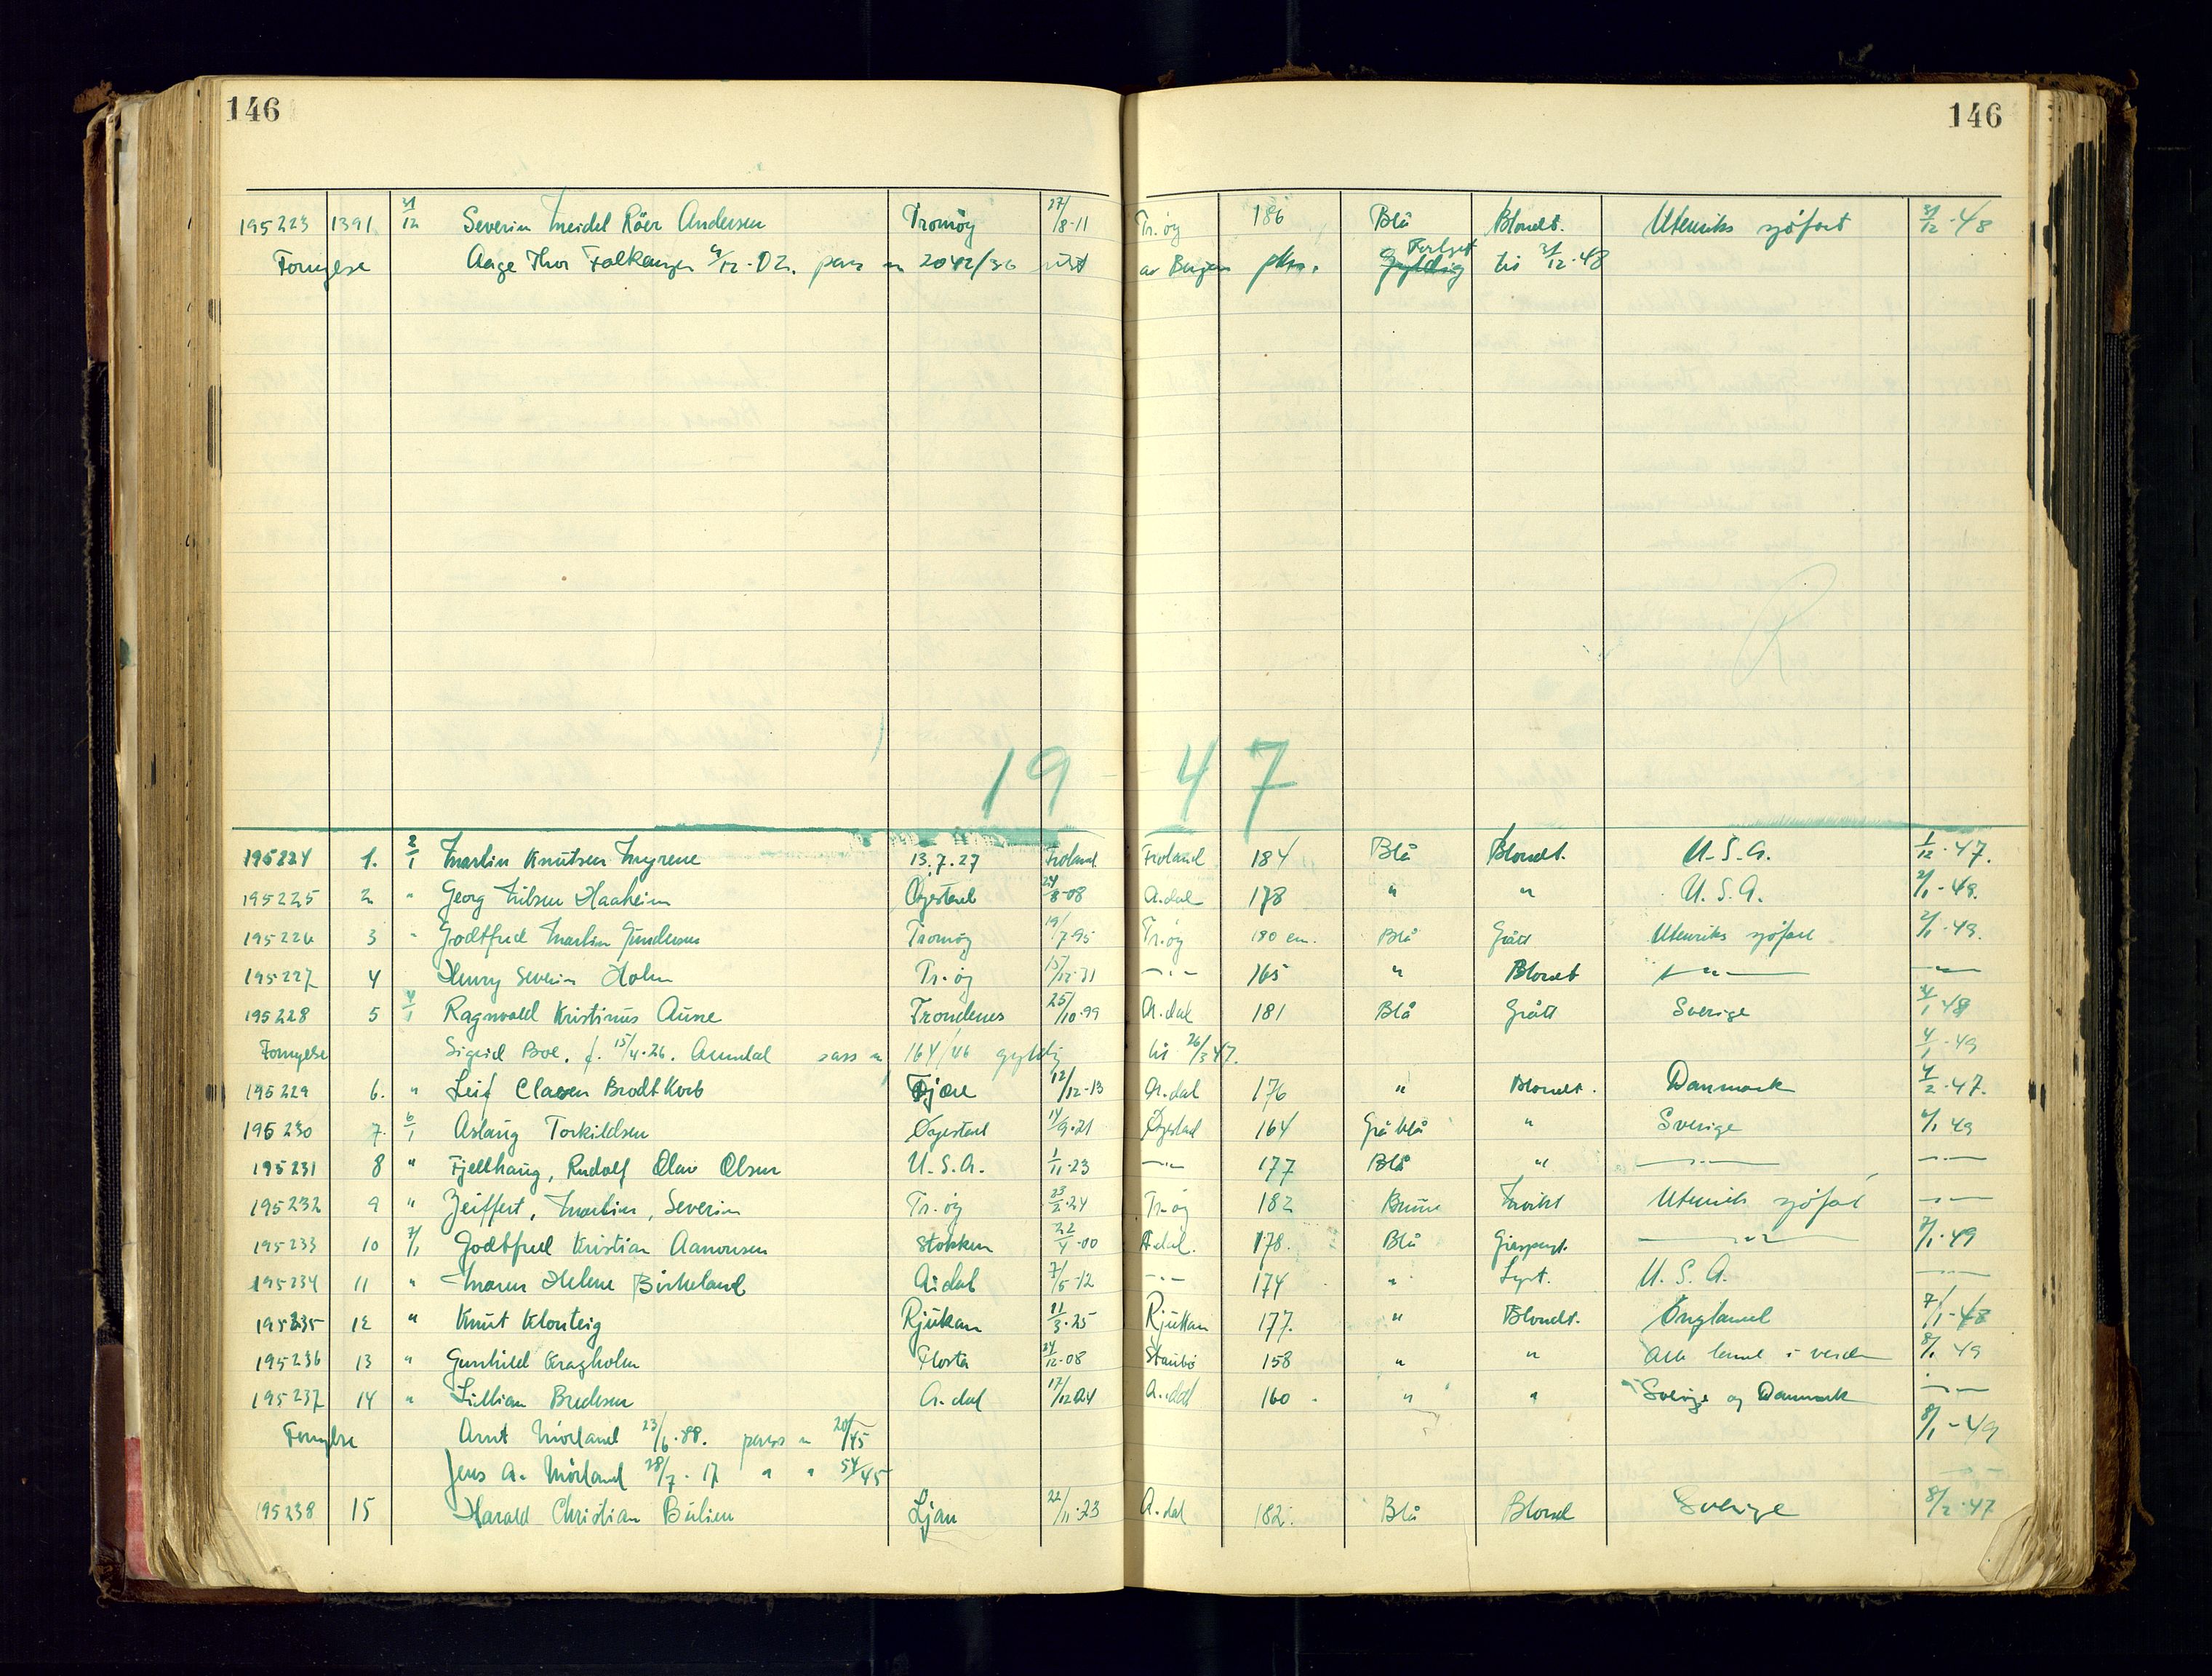 146 146
195223 1391 31/12 Severin Meidel Röer Andersen Tromöy 27/8-11 Tr.öy 186 Blå Blondt. Utenriks sjöfart 31/12-48
Fornyelse Aage Thor Falkanger 4/12-02. pass n 2042/36 utst av Bergen pkm. Forlenget til 31/12-48
19 47
195224 1. 2/1 Martin Knutsen Myrene 13.7.27 Froland Froland 184 Blå Blondt. U.S.A. 1/12-47.
195225 2 " Georg Nilsen Haaheim Öyestad 24/8-08 A.dal 178 " " U.S.A. 2/1-49.
195226 3 " Godtfred Martin Gundersen Tromöy 19/7-95 Tr.öy 180 cm. Blå Grått Utenriks sjöfart 2/1-49.
195227 4 Henry Severin Holm Tr.öy 15/12-21 -"- 165 " Blondt -"- -"-
195228 5 4/1 Ragnvald Kristinus Aune Trondenes 25/10-99 A.dal 181 Blå Grått Sverige 4/1 48
Fornyelse Sigrid Boe. f. 15/4-26. Arendal pass n 164/46 gyldig til 26/3 47. 4/1-49
195229 6. " Leif Clasen Brodtkorb Fjære 12/12-13 A.dal 176 " Blondt. Danmark 4/2-47.
195230 7. 6/1 Aslaug Torkildsen Öyestad 14/9-21 Öyestad 164 Gråblå " Sverige 6/1 49
195231 8 " Fjellhaug, Rudolf Olav Olsen U.S.A. 1/11-23 -"- 177 Blå " -"- -"-
195232 9 " Zeiffert, Martin, Severin Tr.öy 23/2-24 Tr.öy 182 Brune Mørkt Utenriks sjöfart -"-
195233 10 7/1 Godtfred Kristian Aanonsen Stokken 22/4-00 A.dal. 178. Blå Gråspengt. -"- 7/1-49
195234 11 " Maren Helene Birkeland A.dal 7/5-12 -"- 174 " Lyst. U.S.A. -"-
195235 12 " Knut Klonteig Rjukan 11/3-25 Rjukan 177. " Blondt. England 7/1-48
195236 13 " Gunhild Kragholm Flosta 24/12-08 Staubö 158 " " Alle land i verden 8/1 49
195237 14 " Lillian Bredesen A.dal 17/12 24 A.dal 160 " " Sverige og Danmark -"-
Fornyelse Arnt Mörland 23/6-88. pass n 20/45 8/1-49
Jens A. Mörland 28/7-17 " " 54/45
195238 15 Harald Christian Bülien Ljan 22/11-23 A.dal 182. Blå Blond Sverige 8/2-47